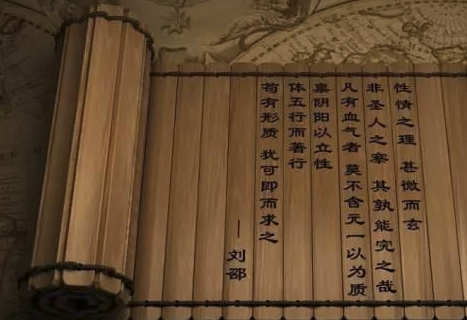 性情之理 甚微而玄
非圣人之察 其孰能究之哉
凡有血气者 莫不含元一以为质
禀阴阳以立性
体五行而著行
苟有形质 犹可即而求之
——刘邵